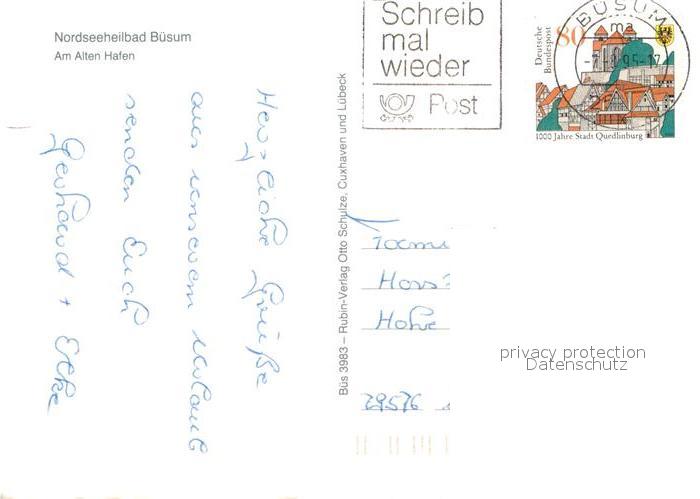 Nordseeheilbad Büsum
Am Alten Hafen
Herzliche Grüße
aus unserem Urlaub
senden Euch
Gerhard + Elke
Büs 3983 – Rubin-Verlag Otto Schulze, Cuxhaven und Lübeck
Schreib
mal
wieder
Post
Deutsche
Bundespost
80
1000 Jahre Stadt Quedlinburg
BÜSUM
ma
95-17
Hors
Hohe
privacy protection
Datenschutz